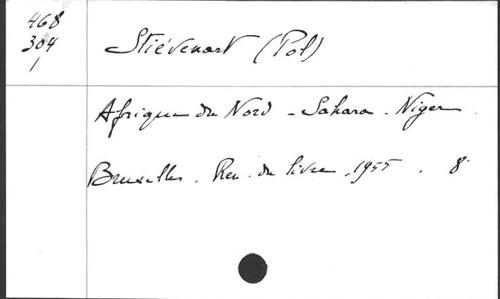 468
304
/
Stiévenart (Pol)
Afrique du Nord - Sahara - Niger.
Bruxelles. Ren. du livre. 1955. 8°